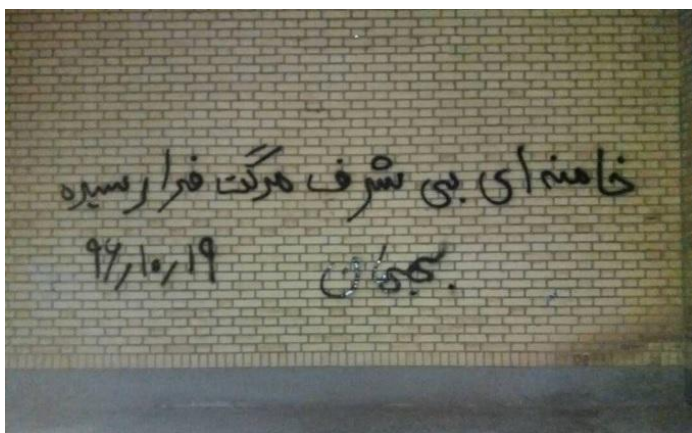 خامنه ای بی شرف مرگت فرا رسیده
۹۶٫۱۰٫۱۹